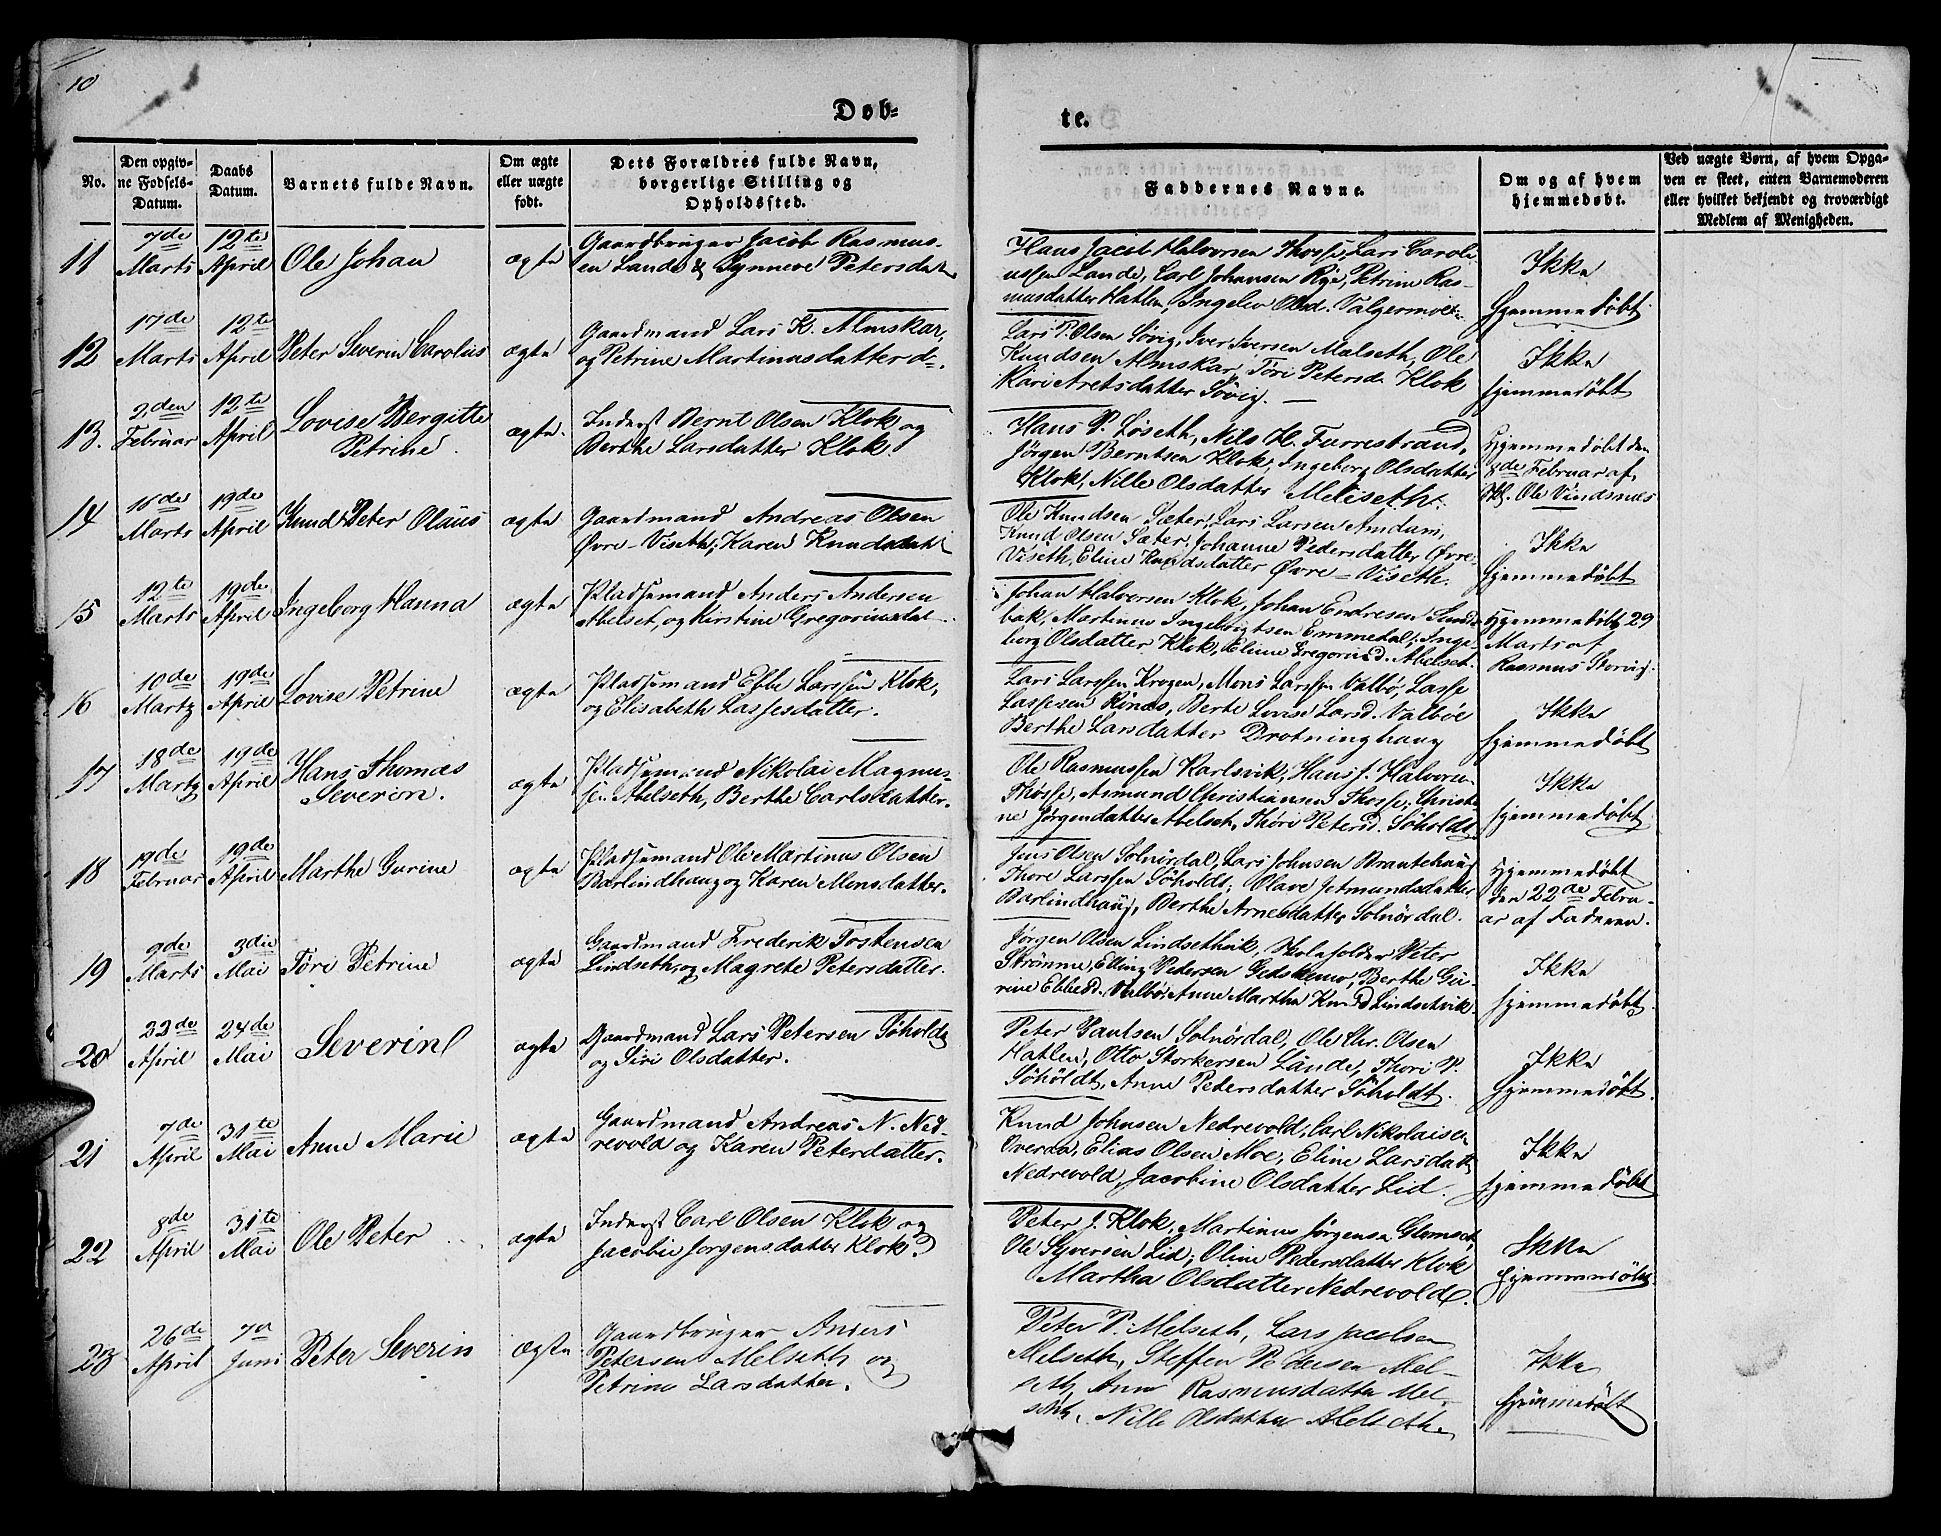 10
Døb-
te.
No.
Den opgiv-
ne Fødsels-
Datum.
Daabs
Datum.
Barnets fulde Navn.
Om ægte
eller uægte
født.
Dets Forældres fulde Navn,
borgerlige Stilling og
Opholdssted.
Faddernes Navne.
Om og af hvem
hjemmedøbt.
Ved uægte Børn, af hvem Opga-
ven er skeet, enten Barnemoderen
eller hvilket bekjendt og troværdigt
Medlem af Menigheden.
11
7de
Marts
12te
April
Ole Johan
ægte
Gaardbruger Jacob Rasmus-
en Lande & Synneve Petersdat
Hans Jacob Halvorsen Thosse, Lars Caroli
ussen Lande, Carl Johansen Rye, Petrine Ras-
musdatter Hatlen, Ingelev Olsd. Valgermoe
Ikke
Hjemmedøbt
12
17de
Marts
12te
April
Peter Severin Carolus
ægte
Gaardmand Lars K. Almskar,
og Petrine Martinusdatter do.
Lars P. Olsen Søvig, Iver Iversen Melseth, Ole
Knudsen Almskar, Tøri Petersd. Klok
Kari Aretsdatter Søvig.
Ikke
hjemmedøbt
13.
2den
Februar
12te
April
Lovise Bergitte
Petrine
ægte.
Inderst Bernt Olsen Klok og
Berthe Larsdatter Klok.
Hans P. Løseth, Nils H. Furrestrand,
Jørgen Berntsen Klok, Ingeborg Olsdatter
Klok, Nille Olsdatter Melseth.
Hjemmedøbt den
8de Februar af
Skl. Ole Vindsnæs
14
15de
Marts
19de
April
Knud Peter Olaus
ægte
Gaardmand Andreas Olsen
Øvre-Viseth, Karen Knudsdat
Ole Knudsen Sæter, Lars Larsen Amdam,
Knud Olsen Sæter, Johanne Pedersdatter Øvre-
Viseth, Eline Knudsdatter Øvre-Viseth.
Ikke
hjemmedøbt
15
12te
Marts
19de
April
Ingeborg Hanna
ægte
Pladsemand Anders Andersen
Abelset, og Kirstine Gregoriusdat
Johan Halversen Klok, Johan Endresen Sund-
bak, Martinus Ingebrigtsen Emmedal, Inge-
borg Olsdatter Klok, Eline Gregoriusd. Abelset.
Hjemmedøbt 29
Marts af
Rasmus Skorvig.
16
10de
Marts
19de
April
Lovise Petrine
ægte
Pladsemand Ebbe Larssen Klok,
og Elisabeth Lassesdatter.
Lars Larssen Krogen, Mons Larssen Valbø, Lasse
Lassesen Rønes, Berte Lovise Larsd. Valbøe
Berthe Larsdatter Drotninghaug
Ikke
hjemmedøbt
17
18de
Marts
19de
April
Hans Thomas
Severin.
ægte
Pladsemand Nikolai Magnus-
sen Abelseth, Berthe Carlsdatter.
Ole Rasmussen Karlsvik, Hans J. Halvorsen
Thosse, Asmund Christiansen Thosse, Christi-
ne Jørgendatter Abelset, Thøri Petersd. Søholdt
Ikke
hjemmedøbt
18
19de
Februar
19de
April
Marthe Gurine
ægte
Pladsemand Ole Martinus Olsen
Barlindhaug og Karen Monsdatter.
Jens Olsen Solnørdal, Lars Johnsen Brautehaug
Thore Larssen Søholdt, Olave Jetmundsdatter
Barlindhaug, Berthe Arnesdatter Solnørdal.
Hjemmedøbt
den 22de Febru-
ar af Faderen.
19
9de
Marts
3die
Mai
Tøri Petrine
ægte
Gaardmand Frederik Tostensen
Lindseth, og Magrete Petersdatter.
Jørgen Olsen Lindsethvik, Skoleholder Peter
Strømme, Elling Pedersen Gedskemo, Berthe Gu-
rine Ebbesd. Valbø, Anne Martha Knusd Lindsetvik
Ikke
hjemmedøbt
20
22de
April
24de
Mai
Severine
ægte
Gaardmand Lars Petersen Søholdt
og Siri Olsdatter.
Peter Gautsen Solnørdal, Ole Chr. Olsen
Hatlen, Otto Storkersen Lande, Thøri P.
Søholdt, Anne Petersdatter Søholdt.
Ikke
hjemmedøbt
21
7de
April
31te
Mai
Anne Marie
ægte
Gaardmand Andreas N. Ned-
revold og Karen Petersdatter.
Knud Johnsen Nedrevold, Carl Nikolaisen
Overaa, Elias Olsen Moe, Eline Larsdatt
Nedrevold, Jacobine Olsdatter Lid.
Ikke
hjemmedøbt
22
8de
April
31te
Mai
Ole Peter
ægte
Inderst Carl Olsen Klok og
Jacobie Jørgensdatter Klok.
Peter J. Klok, Martinus Jørgensen Glomset,
Ole Syversen Lid, Oline Pedersdatter Klok
Martha Olsdatter Nedrevold.
Ikke
hjemmedøbt
23
26de
April
7de
Juni
Peter Severin
ægte
Gaardbruger Anders
Petersen Melseth og
Petrine Larsdatter.
Peter P. Melseth, Lars Jacobsen
Melseth, Steffen Pedersen Mel-
seth, Anne Rasmusdatter Mel-
seth, Nille Olsdatter Abelseth.
Ikke
hjemmedøbt